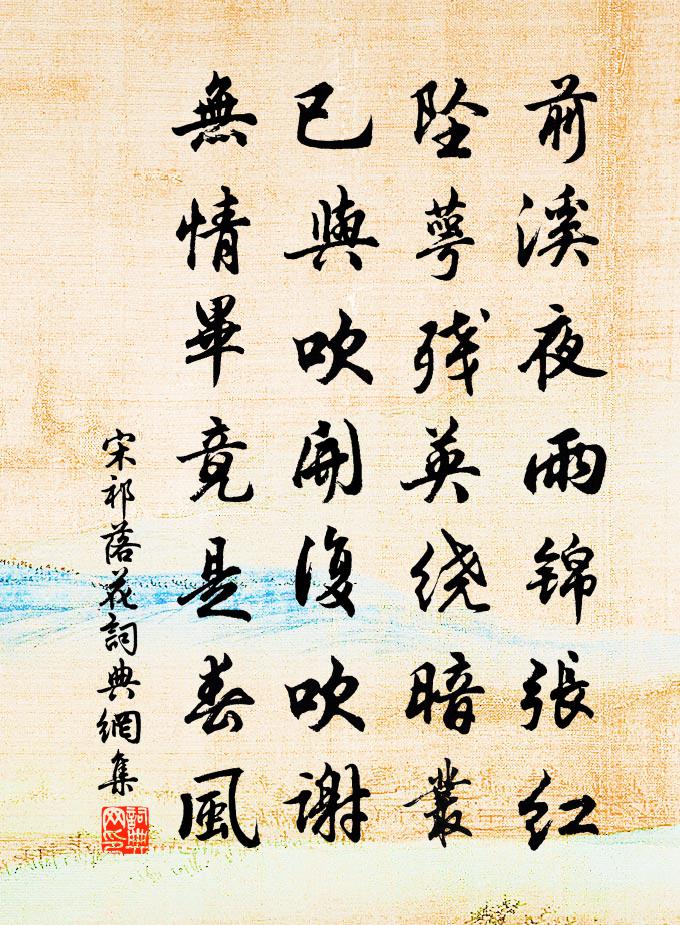 前溪夜雨锦張红
坠萼残英绕暗叢
已與吹開復吹謝
無情畢竟是春風
宋祁落花詞典網集
詞典网印